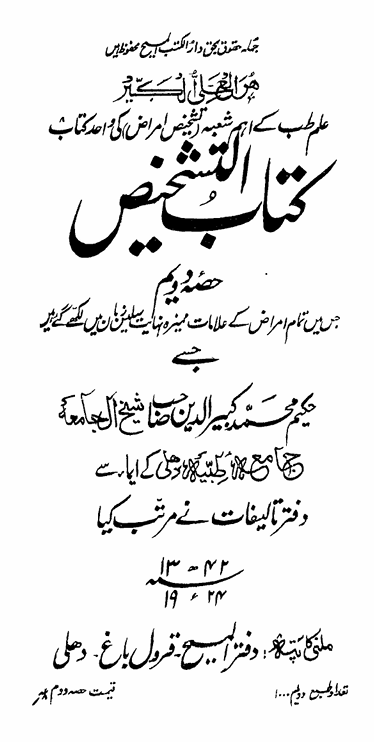 جملہ حقوق بحق دار الکتب المسیح محفوظ ہیں
ھو العلی الکبیر
علم طب کے اہم شعبہ (تشخیص امراض) کی واحد کتاب
کتاب التشخیص
حصہ دویم
جس میں تمام امراض کے علامات ممیزہ نہایت سلیس زبان میں لکھے گئے ہیں
جسے
حکیم محمد کبیر الدین صاحب شیخ الجامعہ
جامعہ طبیہ دھلی کے ایماء سے
دفتر تالیفات نے مرتب کیا
۱۳۴۲ھ
سنہ
۱۹۲۴ء
ملنے کا پتہ: دفتر المسیح - قرول باغ - دھلی
تعداد طبع دویم ۱۰۰۰
قیمت حصہ دوم